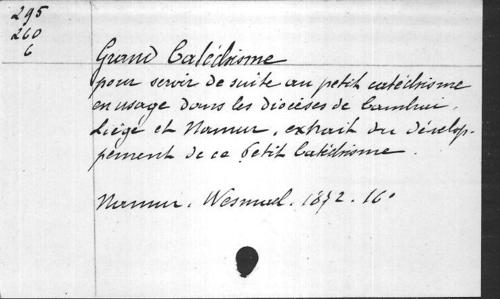 295
260
6
Grand Catéchisme
pour servir de suite au petit catéchisme
en usage dans les diocèses de Cambrai,
Liége et Namur, extrait du dévelop-
pement de ce Petit Catéchisme.
Namur. Wesmael. 1872. 16°